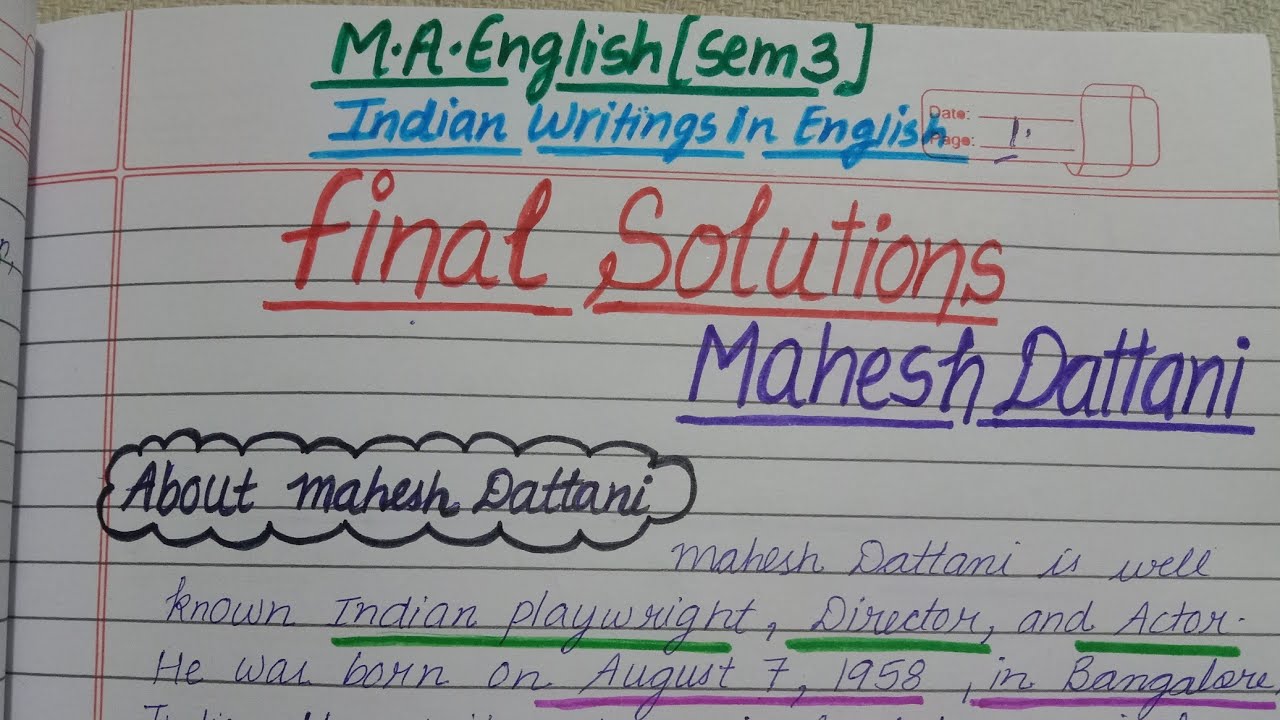 M.A.English[sem3]
Indian Writings in English
Date:
Page: 1.
final Solutions
Mahesh Dattani
About mahesh Dattani
mahesh Dattani is well
known Indian playwright, Director, and Actor.
He was born on August 7, 1958, in Bangalore,